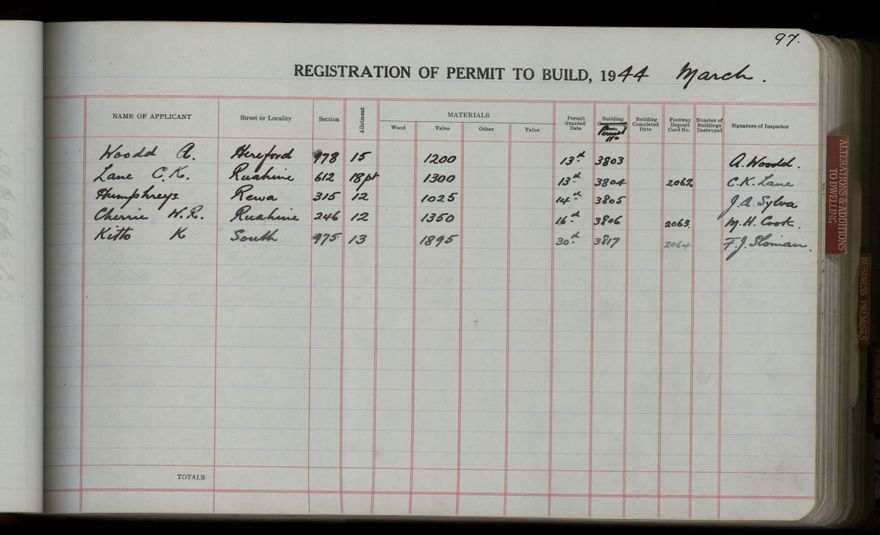 97.
REGISTRATION OF PERMIT TO BUILD, 1944 March.
NAME OF APPLICANT Street or Locality Section Allotment MATERIALS Wood Value Other Value Permit Granted Date Building Permit No Building Completed Date Footway Deposit Card No. Number of Buildings Destroyed Signature of Inspector
Woodd A. Hereford 978 15 1200 13th 3803 A. Woodd.
Lane C.K. Ruahine 612 18pt 1300 13th 3804 2062 C.K. Lane
Humphreys. Rewa 315 12 1025 14th 3805 J.A. Sylva
Cherrie W.R. Ruahine 246 12 1350 16th 3806 2063. M.H. Cook.
Kitto K South 975 13 1895 30th 3817 2064 F.J. Sloman.
TOTALS
ALTERATIONS & ADDITIONS
TO DWELLING
BUSINESS PREMISES